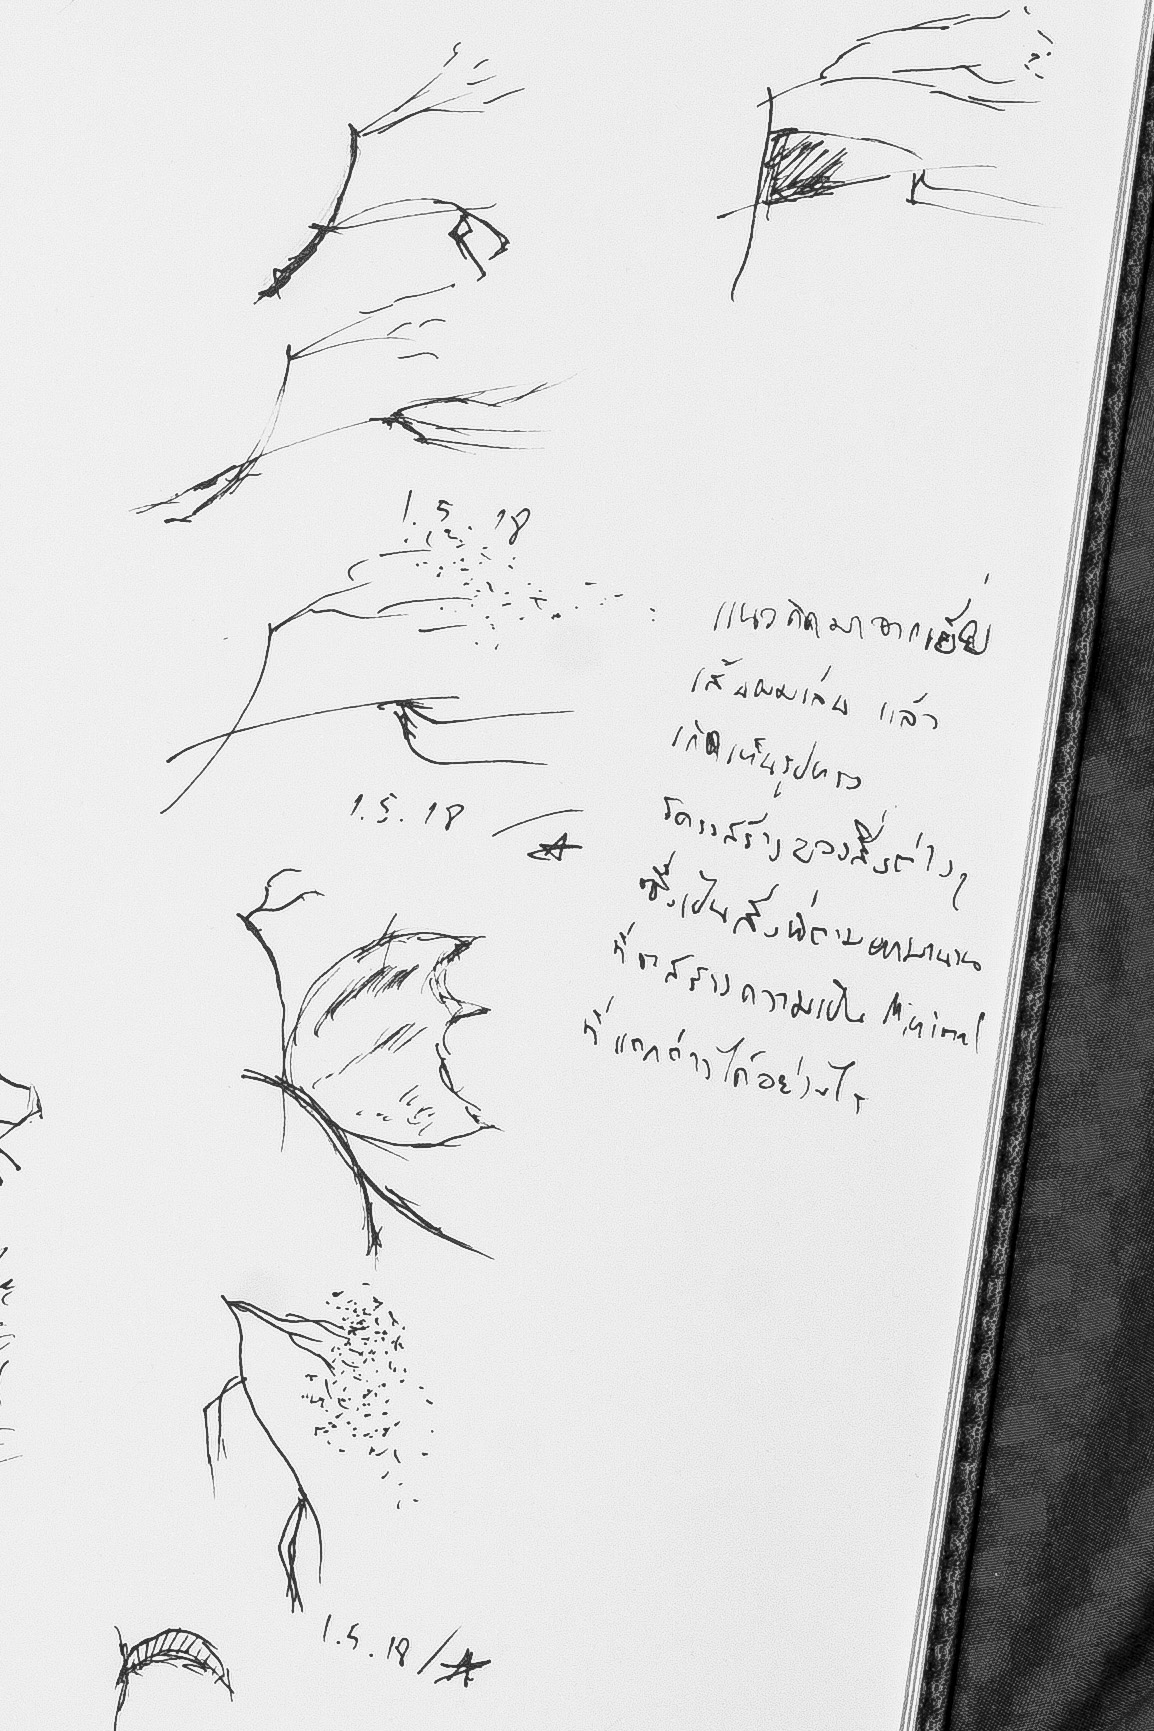 1.5.18
แนวคิดมาจาก
เส้นผมเล่น แล้ว
เกิดเห็นรูปทรง
1.5.18
โครงสร้างของสิ่งต่างๆ
ซึ่งเป็นสิ่งที่
ที่จะสร้างความเป็น Minimal
ที่แตกต่างได้อย่างไร
1.5.18